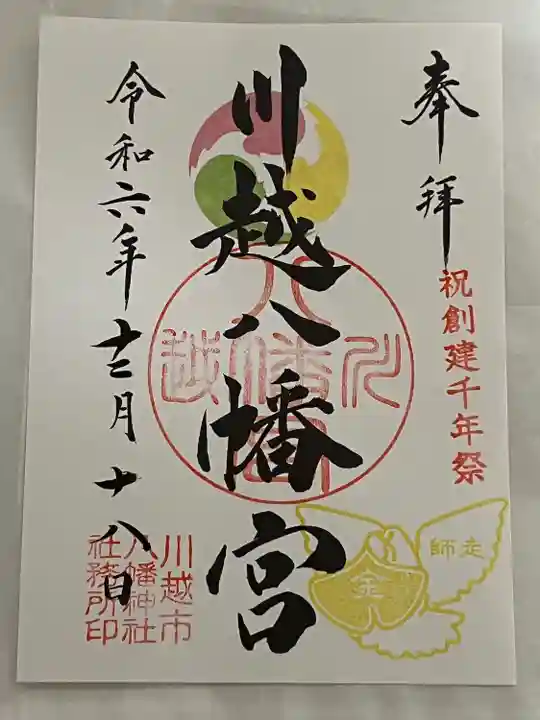 奉拝
祝創建千年祭
川越八幡宮
川越八幡宮
令和六年十二月十八日
川越市
八幡神社
社務所印
走師
金